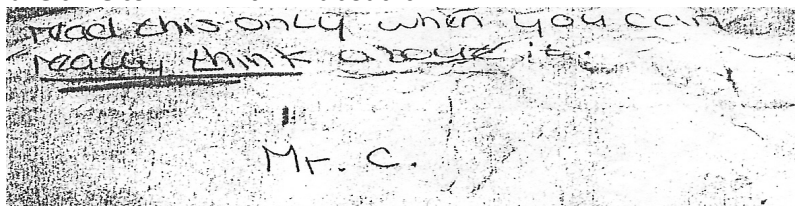 read this only when you can
really think about it.
Mr. C.